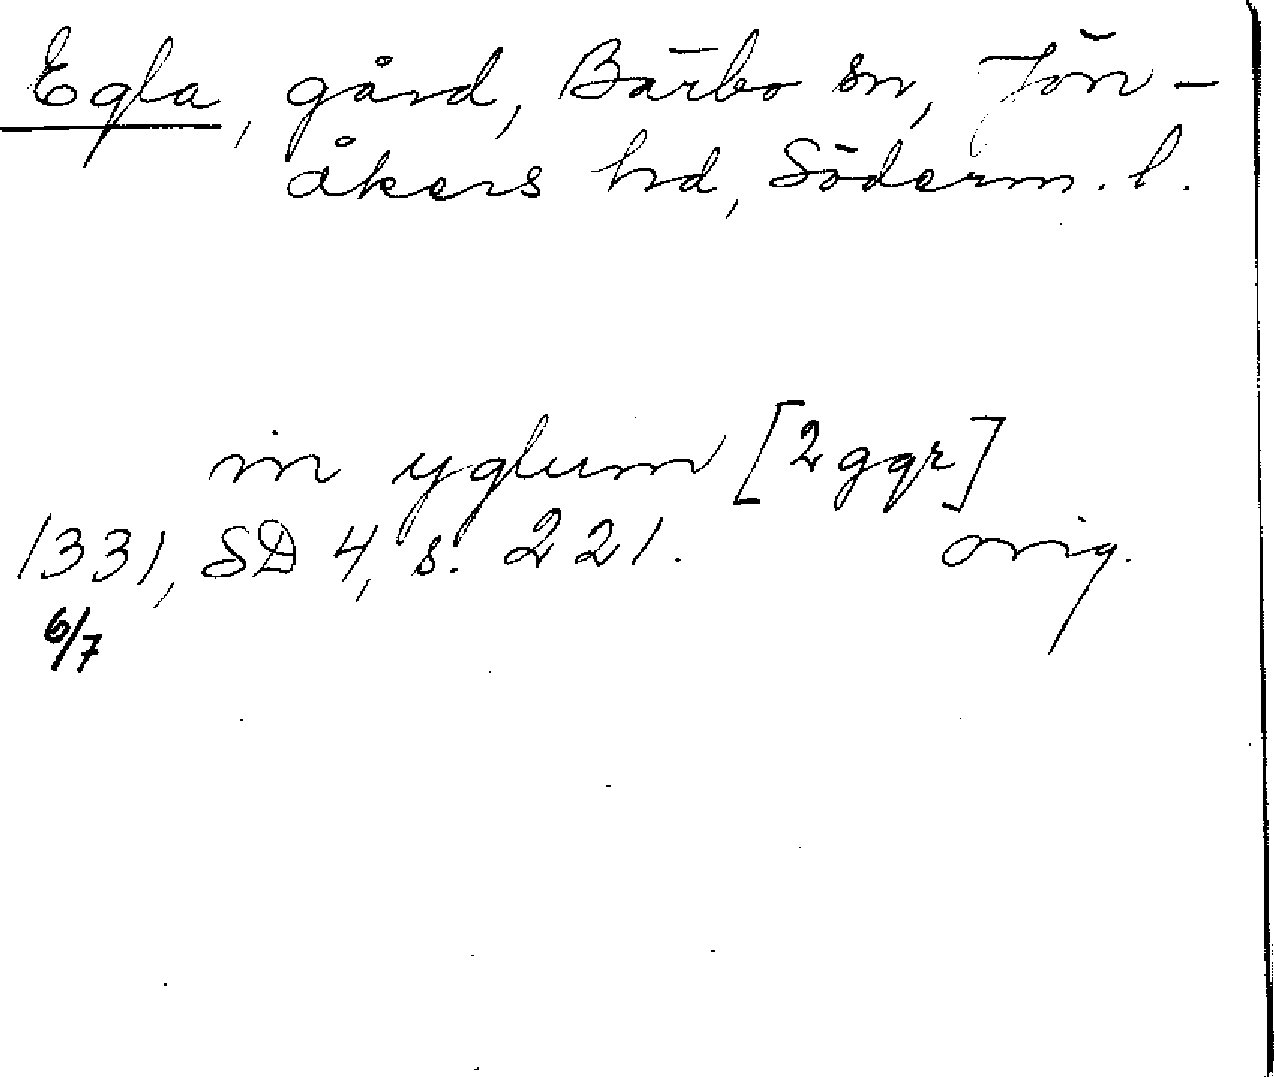 Egla, gård, Bärbo sn, Jön-
åkers hd, Söderm. l.
in yglum [2 ggr]
1331, SD 4, s. 221. orig.
6/7